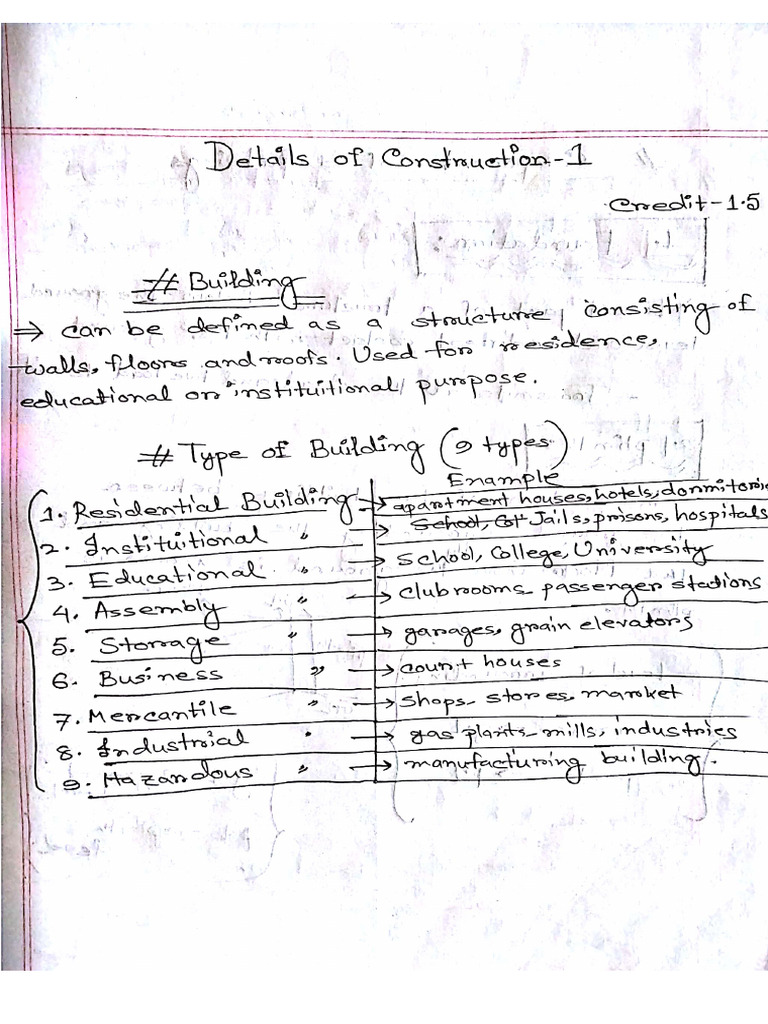 Details of Construction-1
Credit-1.5
# Building
⇒ can be defined as a structure, consisting of
walls, floors and roofs. Used for residence,
educational or instituitional purpose.
# Type of Building (9 types)
Example
1. Residential Building → apartment houses, hotels, dormitories
2. Instituitional " → School, Col Jails, prisons, hospitals
3. Educational " → School, College, University
4. Assembly " → club rooms, passenger stations
5. Storage " → garages, grain elevators
6. Business " → court houses
7. Mercantile " → shops, stores, market
8. Industrial " → gas plants, mills, industries
9. Hazardous " → manufacturing building.